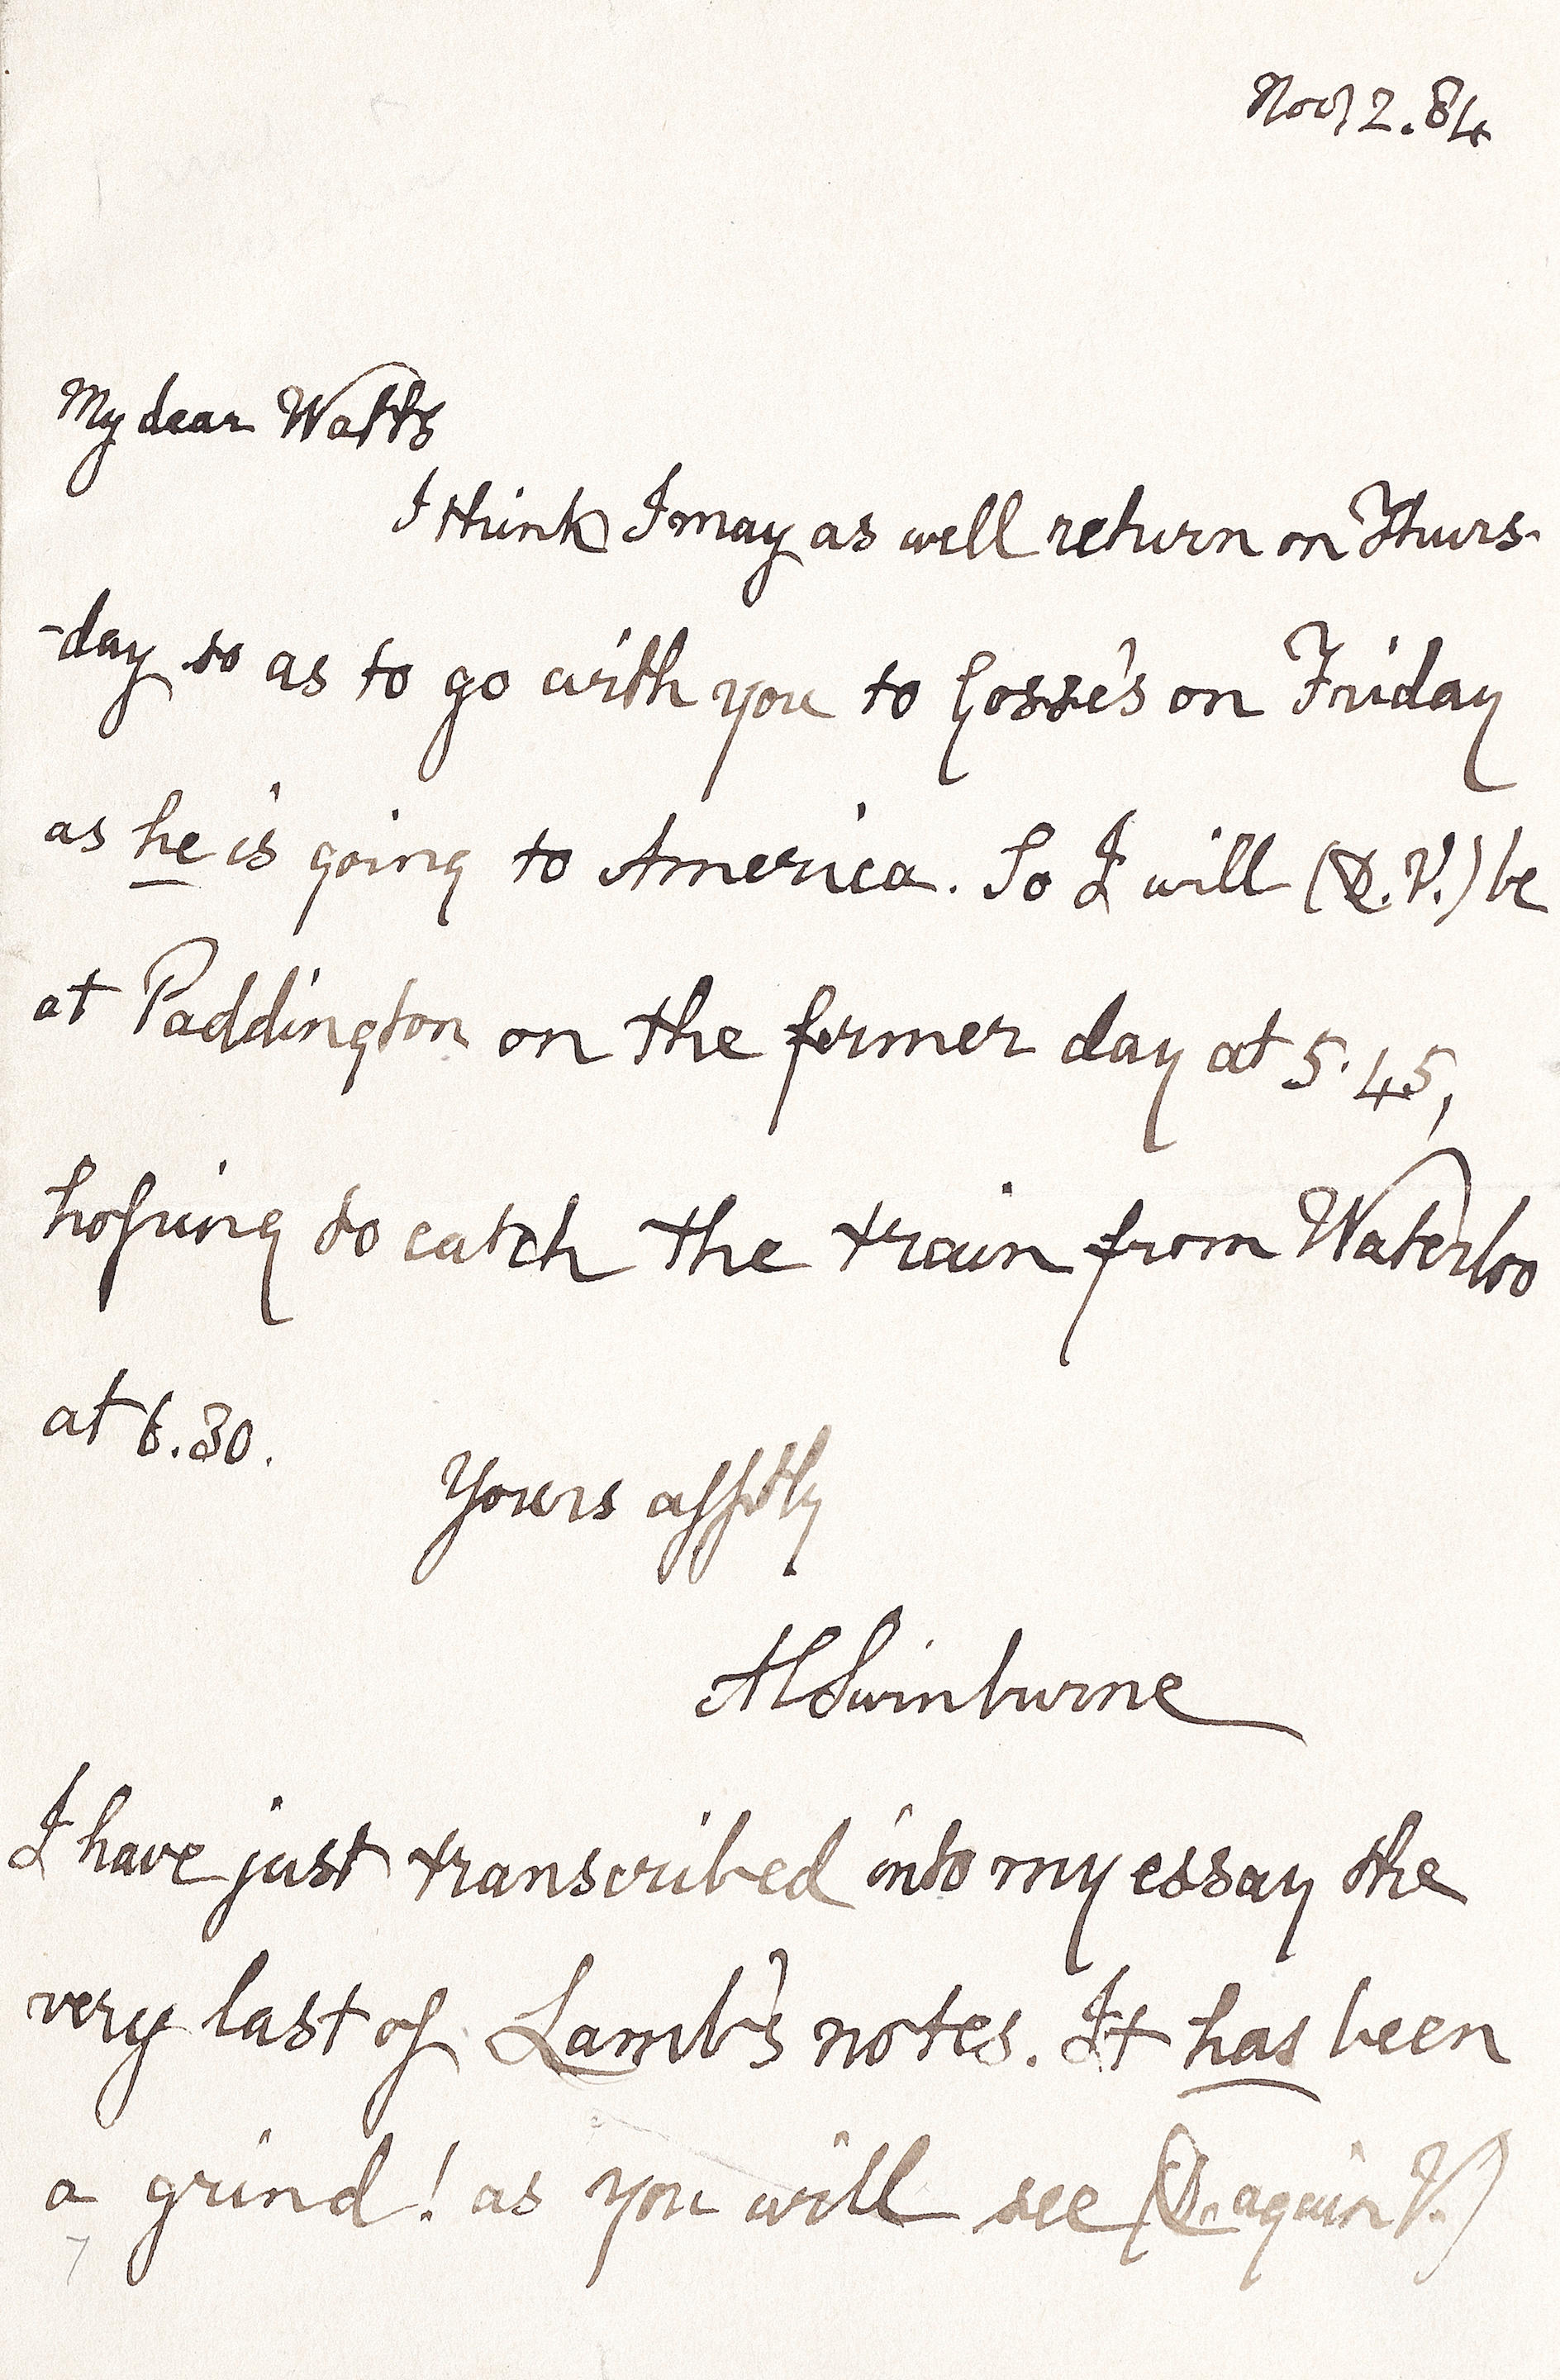 Nov 12. 84
My dear Watts
I think I may as well return on Thurs-
-day so as to go with you to Gosse's on Friday
as he is going to America. So I will (D.V.) be
at Paddington on the former day at 5.45,
hoping to catch the train from Waterloo
at 6.30.
Yours afftly
ACSwinburne
I have just transcribed into my essay the
very last of Lamb's notes. It has been
a grind! as you will see (D. again V.)
7